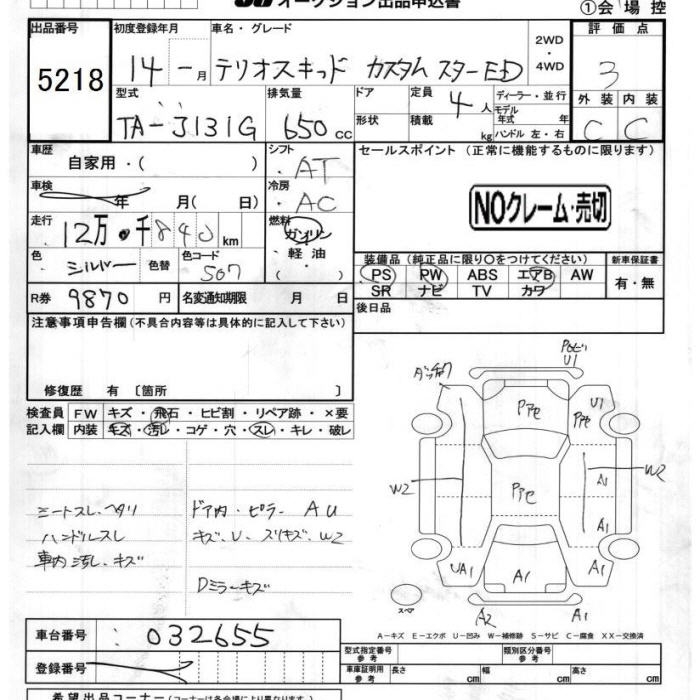 オークション出品申込書
①会場控
出品番号
5218
初度登録年月
14 年 一 月
車名・グレード
テリオスキッド カスタムスターED
2WD
・
4WD
評価点
3
外装 内装
C C
型式
TA-J131G
排気量
650 cc
ドア
形状
定員
4 人
積載
kg
ディーラー・並行
モデル
年式 年
ハンドル 左・右
車歴
自家用・( )
シフト
・AT
車検
年 月( 日)
冷房
・AC
走行
12万・千840 km
燃料
ガソリン
・軽油・
( )
色
シルバー
色替
色コード
S07
R券
9870 円
名変通知期限 月 日
セールスポイント (正常に機能するものに限ります)
NOクレーム・売切
装備品(純正品に限り○をつけてください)
PS PW ABS エアB AW
SR ナビ TV カワ
新車保証書
有・無
後日品
注意事項申告欄(不具合内容等は具体的に記入して下さい)
修復歴 有 〔箇所 〕
検査員
記入欄
FW キズ・飛石・ヒビ割・リペア跡・×要
内装 キズ・汚レ・コゲ・穴・スレ・キレ・破レ
シートスレ、ヘタリ
ハンドルスレ
車内汚レ、キズ
ドア内・ピラー AU
キズ、U、スリキズ、W2
Dミラーキズ
U1
アセ
U1
W2
W2
アセ
A1
A1
UA1
A1
A1
スペア
A2
A1
A-キズ E-エクボ U-凹み W-補修跡 S-サビ C-腐食 XX-交換済
車台番号
032655
登録番号
型式指定番号
参考
類別区分番号
参考
車庫証明用
参考
長さ cm
幅 cm
高さ cm
希望出品コーナー(コーナーは各会場により異なります)